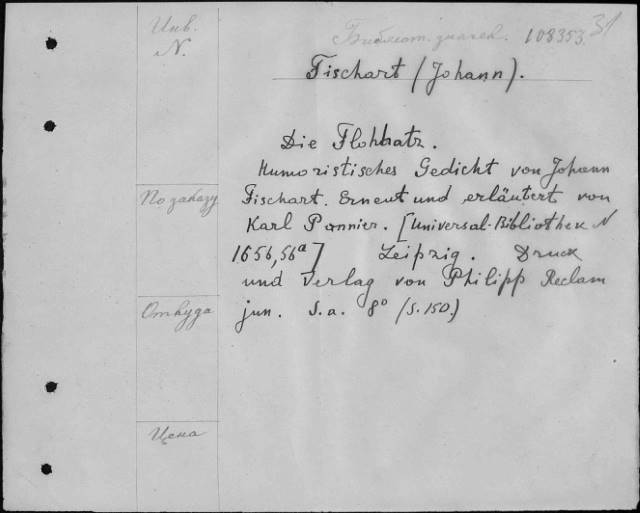 Инв.
N.
Библиот. значек. 108353. 31
Fischart (Johann).
Die Flohhatz.
Humoristisches Gedicht von Johann
По заказу
Fischart. Erneut und erläutert von
Karl Pannier. [Universal-Bibliothek N
1656,56a] Leipzig. Druck
und Verlag von Philipp Reclam
Откуда
jun. S.a. 8° (S.150.)
Цена